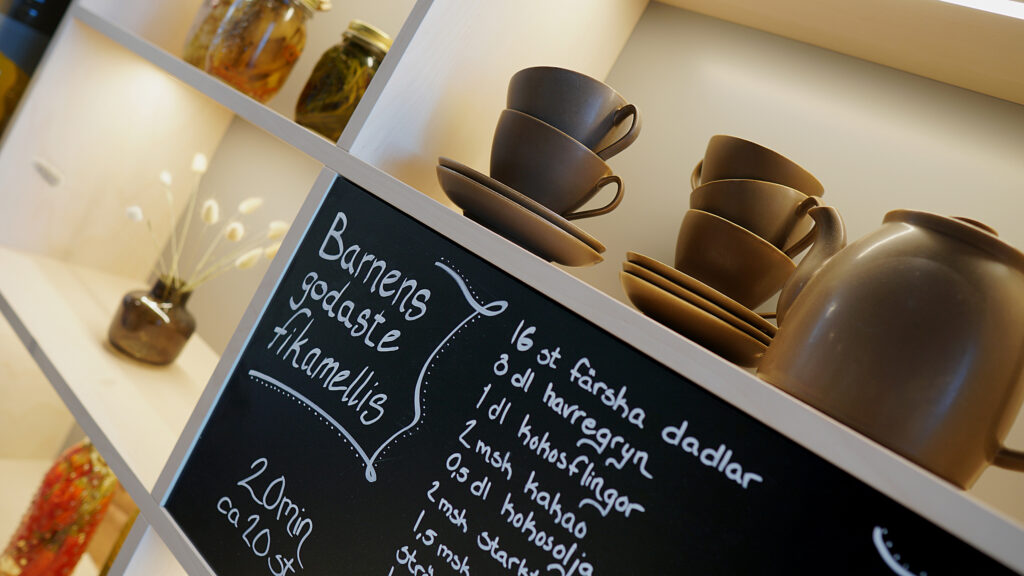 Barnens
godaste
fikamellis
20min
ca 20 st
16 st färska dadlar
3 dl havregryn
1 dl kokosflingor
2 msk kakao
0,5 dl kokosolja
2 msk starkt
1,5 msk